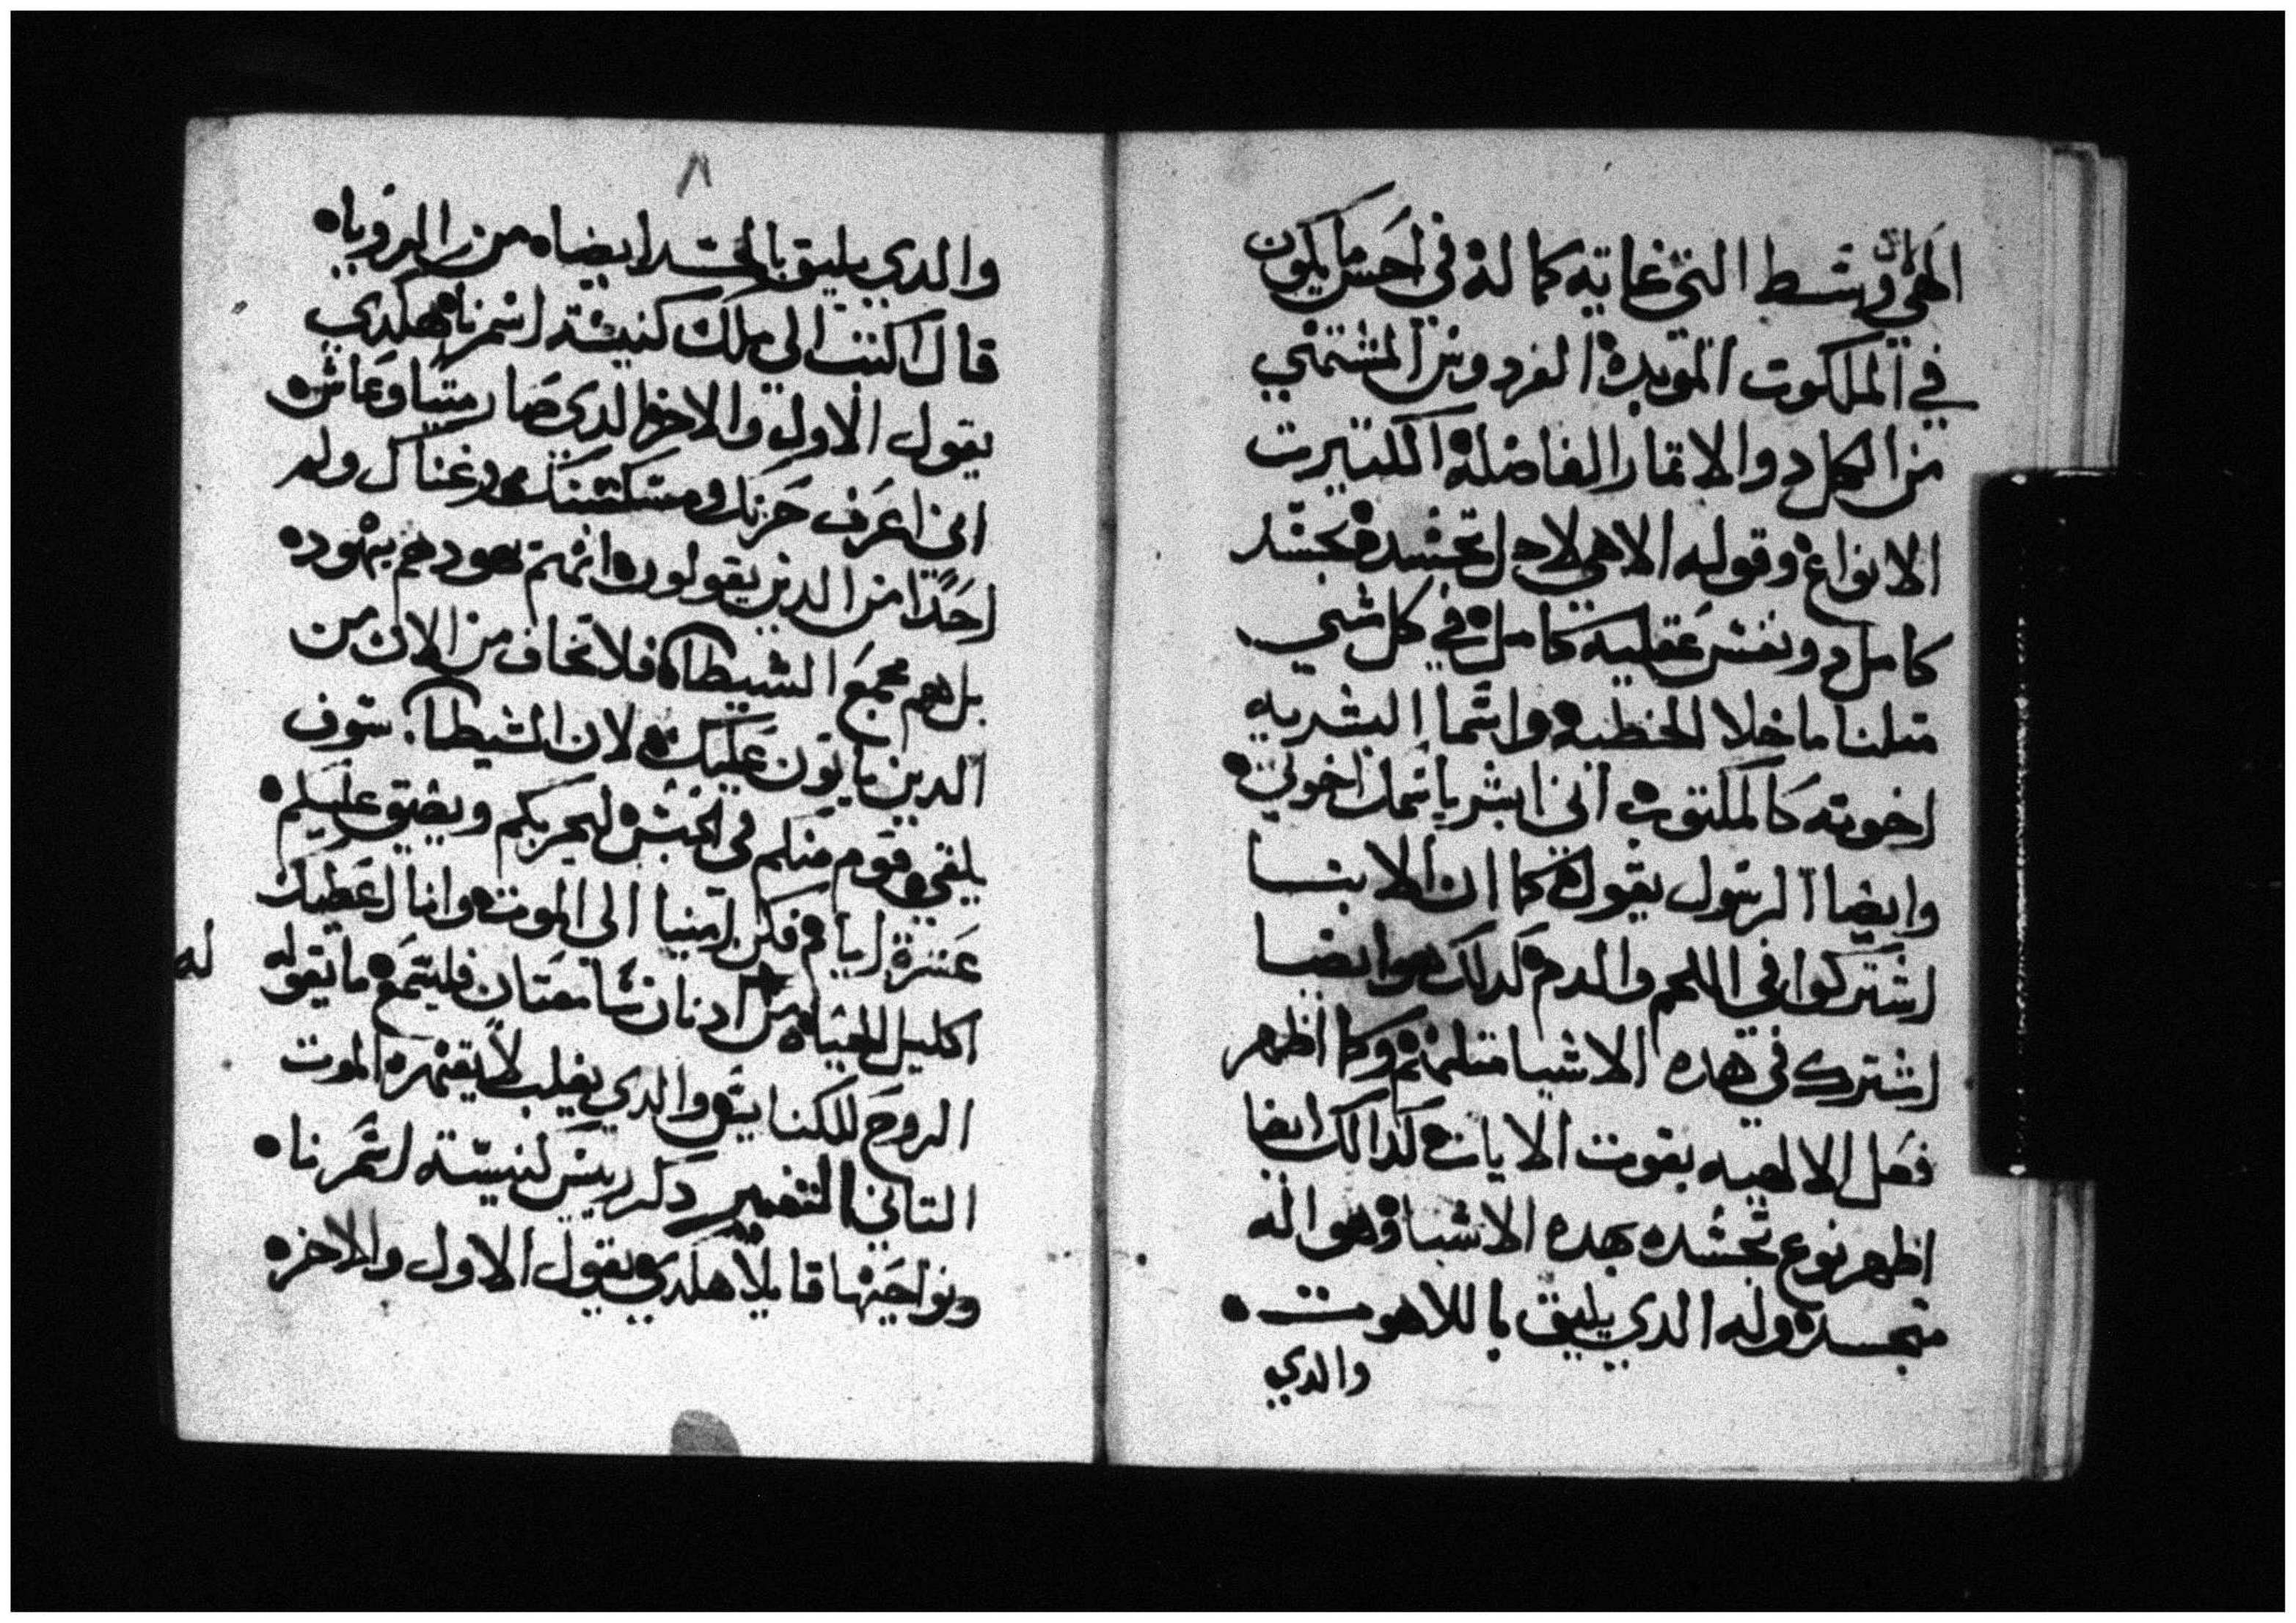 الهي وسط التي غايته كماله في احسن ما يكون
في الملكوت الموبده الفردوس المشتهي
من الكل والاتمار الفاضله الكتيرت
الانواع وقوله الاهي لاجل تجسده بجسد
كامل ونفس عقليه كامل في كل شي
متلنا ما خلا الخطيه واسما البشريه
اخوته كالمكتوب اني ابشر باسمك اخوتي
وايضا الرسول يقول كما ان الابنا
اشتركوا في اللحم والدم كدلك هو ايضا
اشترك في هده الاشيا متلهم وكما اظهر
فعل الالهيه بقوت الايات كدالك ايضا
اظهر نوع تجسده بهده الاشيا وهو اله
متجسد وله الدي يليق باللاهوت
والدي
٨
والدي يليق بالجسد ايضا من الرويا
قال اكتب الى ملك كنيسة اسمرنا هكدي
يقول الاول والاخر الدي صار ميتا وعاش
اني اعرف حزنك ومسكنتك وغناك ولم
احدا من الدين يقولون انهم يهود هم يهود
بل هم مجمع الشيطان فلا تخاف من الان من
الدين ياتون عليك لان الشيطان سوف
يلقي قوم منكم في الحبس ليجربكم ويضيق عليكم
عشرة ايام فكن امينا الى الموت وانا اعطيك
اكليل الحياه من له ادنان سامعتان فليسمع ما تقوله
الروح للكنايس والدي يغلب لا يقهره الموت
التاني التفسير دكر رييس كنيسة اسمرنا
ونواحيها قايلا هكدي يقول الاول والاخر